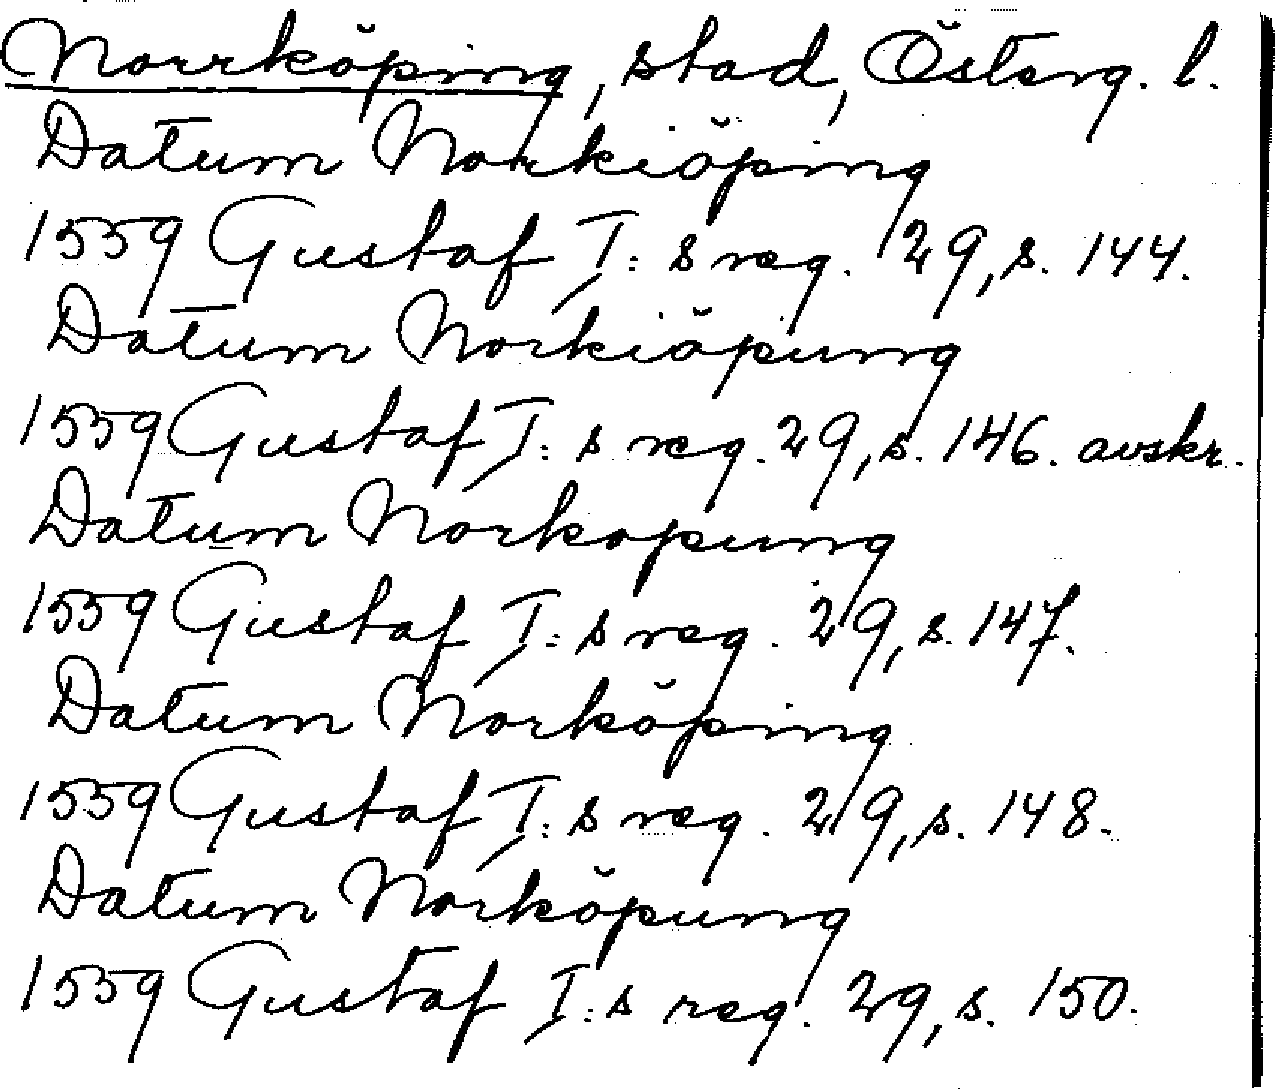 Norrköping, stad, Österg. l.
Datum Norkiöping
1559 Gustaf I:s reg. 29, s. 144.
Datum Norkiöpung
1559 Gustaf I:s reg. 29, s. 146. avskr.
Datum Norkopung
1559 Gustaf I:s reg. 29, s. 147.
Datum Norköping
1559 Gustaf I:s reg. 29, s. 148.
Datum Norköpung
1559 Gustaf I:s reg. 29, s. 150.